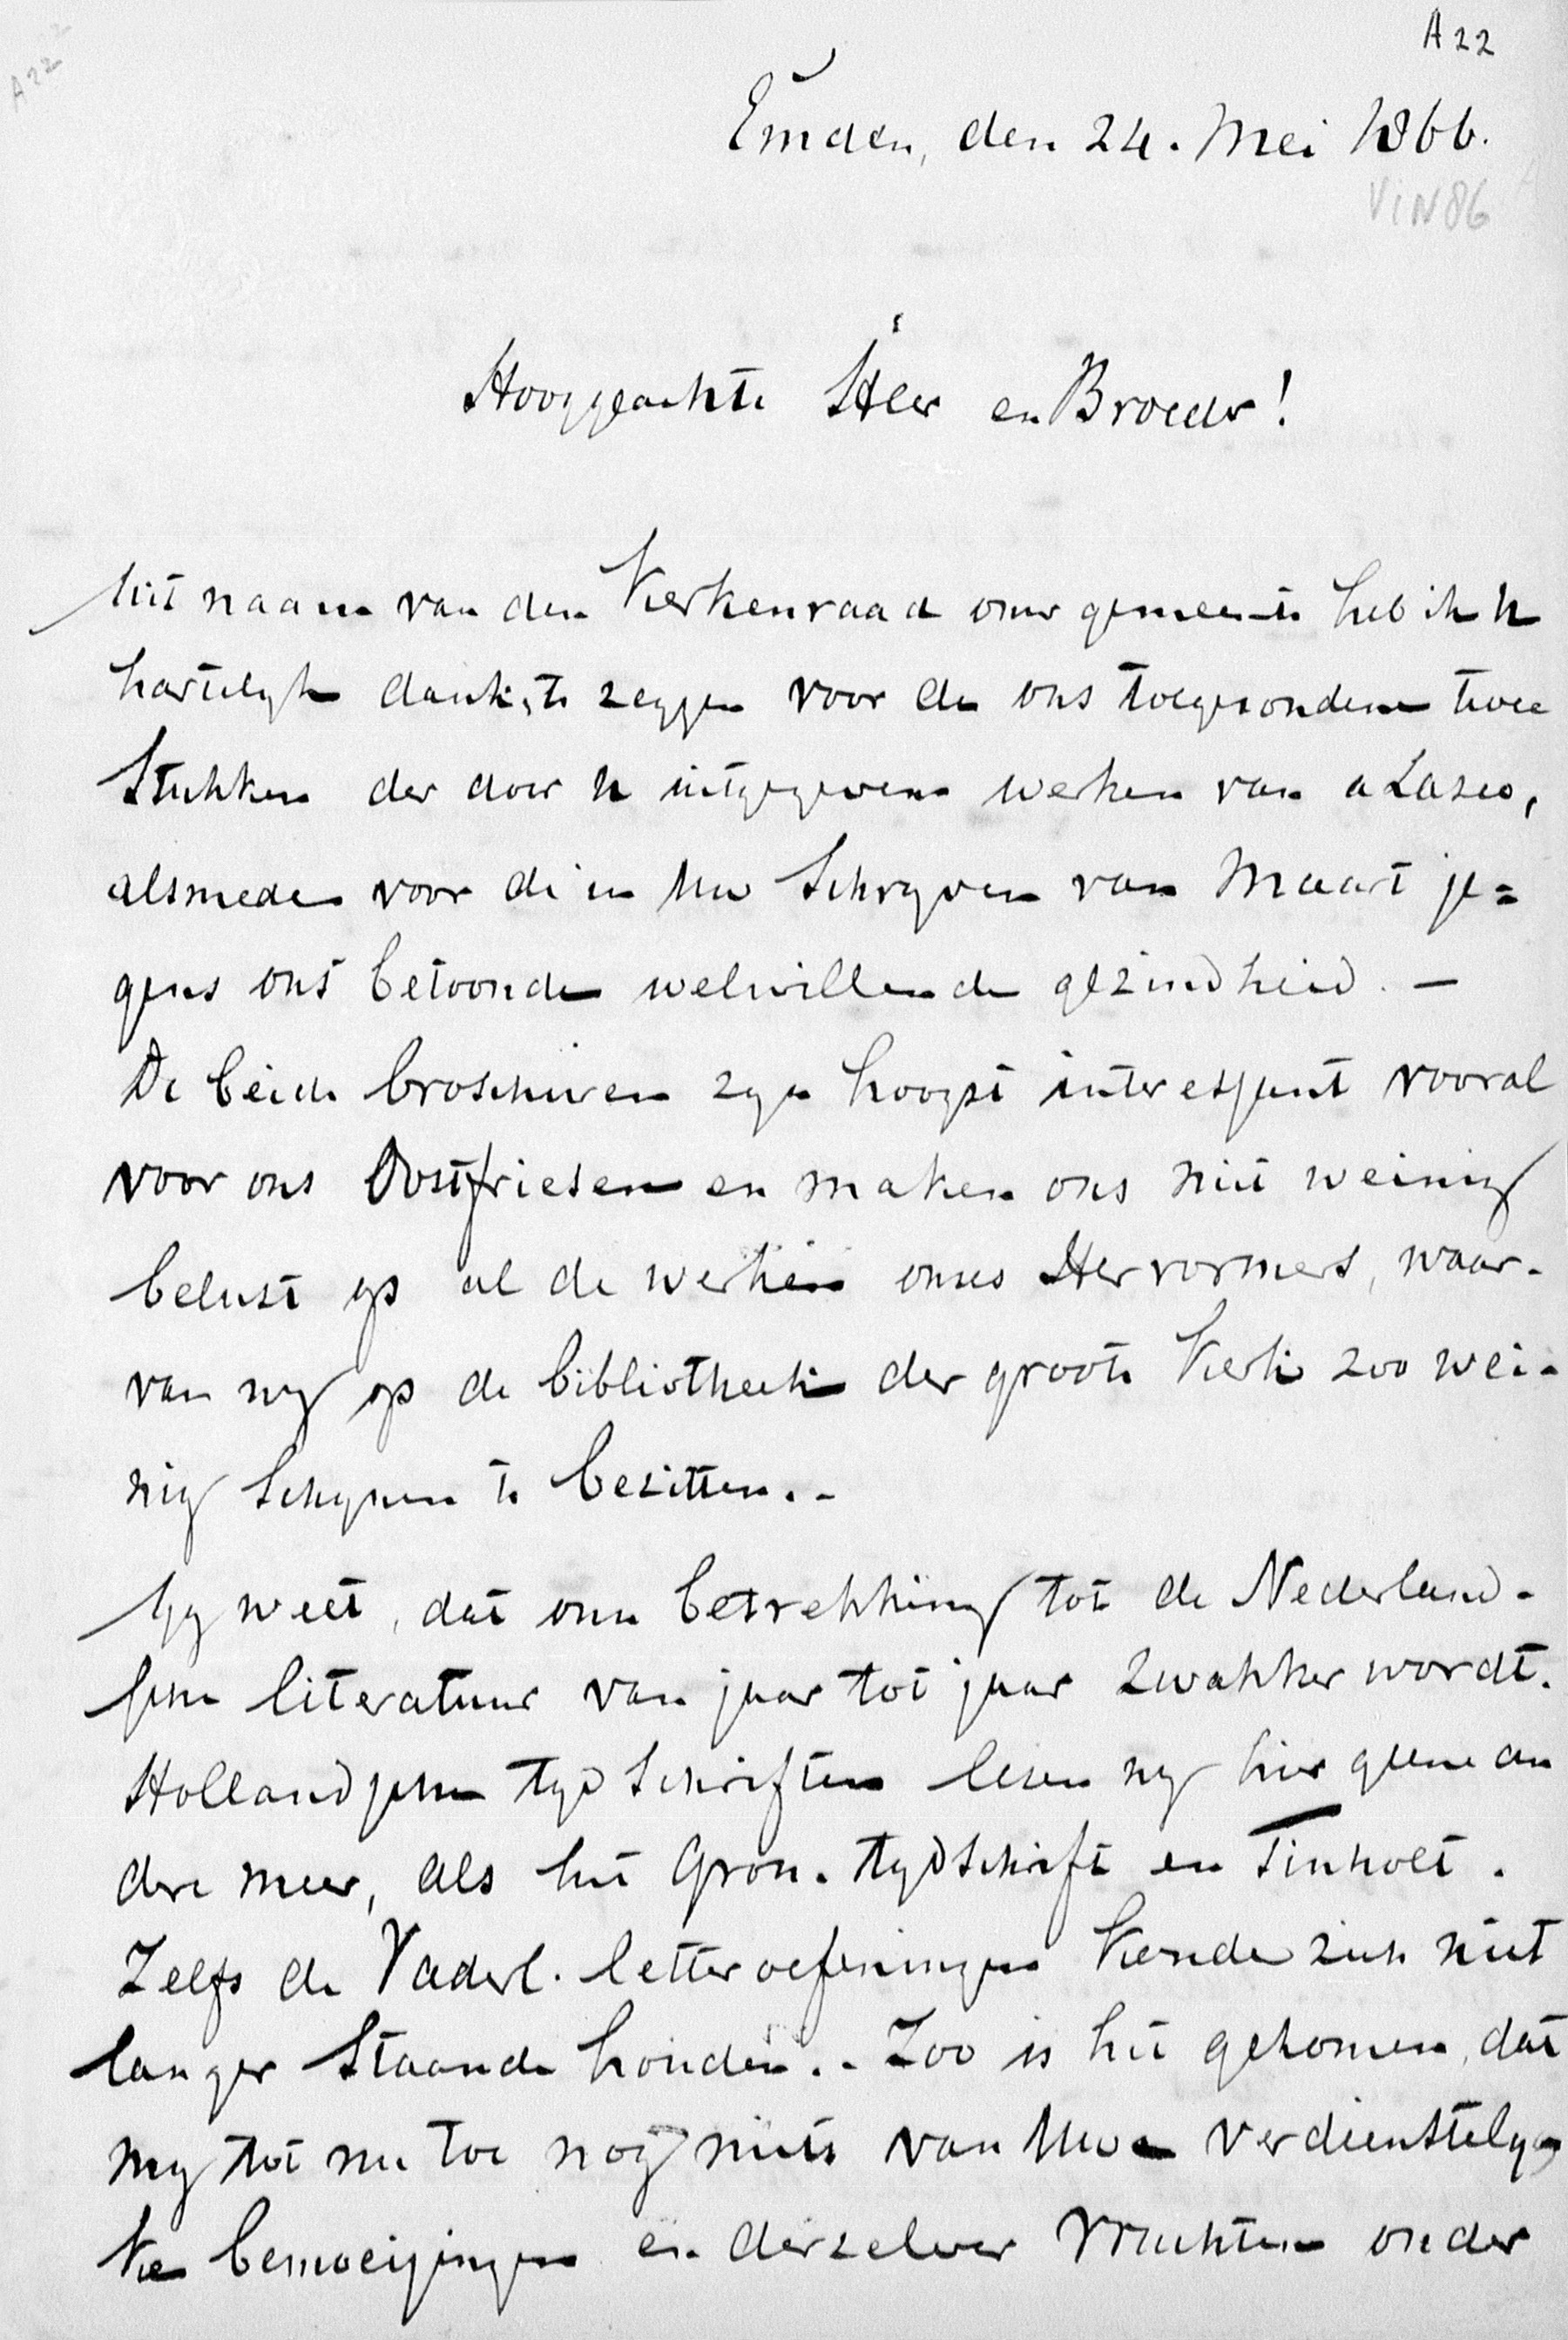 A 22
A 22
Emden, den 24. Mei 1866.
VIN86
Hooggeachte Heer en Broeder!
Uit naam van den Kerkenraad onzer gemeente heb ik U
hartelyk dank te zeggen voor de ons toegezondene twee
Stukken der door U uitgegevene werken van a Lasco,
alsmede voor de in Uw Schryven van Maart je=
gens ons betoonde welwillende gezindheid. —
De beide broschuren zyn hoogst interessant vooral
voor ons Oostfriesen en maken ons niet weinig
belust op al de werken onzes Hervormers, waar-
van wy op de bibliotheek der groote Kerk zoo wei-
nig Schynen te bezitten. -
Gy weet, dat onze betrekking tot de Nederland-
sche literatuur van jaar tot jaar zwakker wordt.
Hollandsche tydschriften lezen wy hier geene an
dere meer, als het Gron. tydschrift en Tinholt.
Zelfs de Vaderl. letteroefeningen konden zich niet
langer Staande houden. - Zoo is het gekomen, dat
wy tot nu toe nog niets van Uwe verdienstely
ke bemoeijingen en derzelver vruchten onder